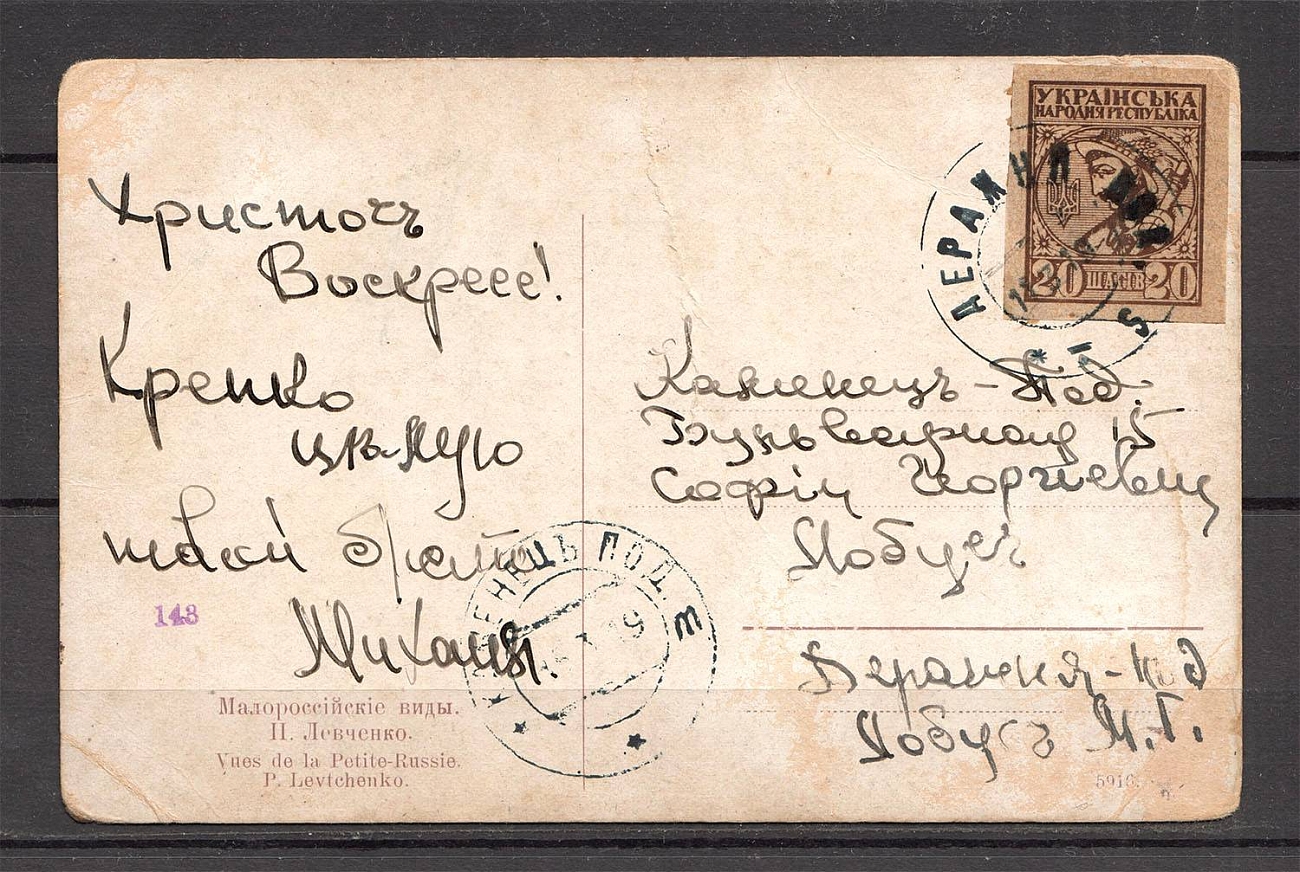 Христосъ
Воскресе!
Крепко
цѣлую
твой братъ
Михаилъ.
148
Малороссійскіе виды.
П. Левченко.
Vues de la Petite-Russie.
P. Levtchenko.
УКРАЇНСЬКА
НАРОДНЯ РЕСПУБЛІКА
20 ШАГІВ 20
ДЕРАЖНЯ
Каменецъ-Под.
Бульварная 15
Софіи Георгіевны
Лобусъ
КАМЕНЕЦЪ ПОД.
Деражня-Под
Лобусъ М.Г.
5916.